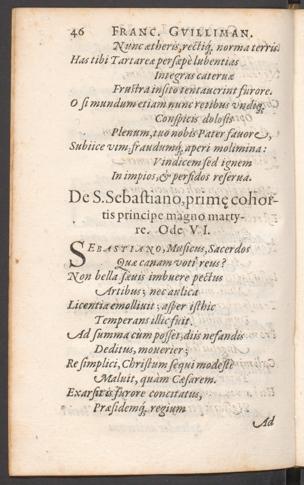 46 FRANC. GVILLIMAN.
Nunc ætheris, rectiq́; norma terris.
Has tibi Tartareæ persæpè lubentias
Integras cateruæ
Frustra insito tentauerint furore.
O si mundum etiam nunc retibus vndiq;
Conspicis dolosis
Plenum, tuo nobis Pater fauore,
Subiice vim, fraudumq́, aperi molimina:
Vindicem sed ignem
In impios, & perfidos reserua.
De S. Sebastiano, primę cohor-
tis principe magno marty-
re. Ode VI.
SEBASTIANO, Musicus, Sacerdos
Quæ canam voti reus?
Non bella sæuis imbuere pectus
Artibus; nec aulica
Licentia emolliuit; asper isthic
Temperans illic fuit.
Ad summa cùm posset, diis nefandis
Deditus, mouerier;
Re simplici, Christum sequi modestè
Maluit, quàm Cæsarem.
Exarsit is furore concitatus,
Præsidemq́, regium
Ad